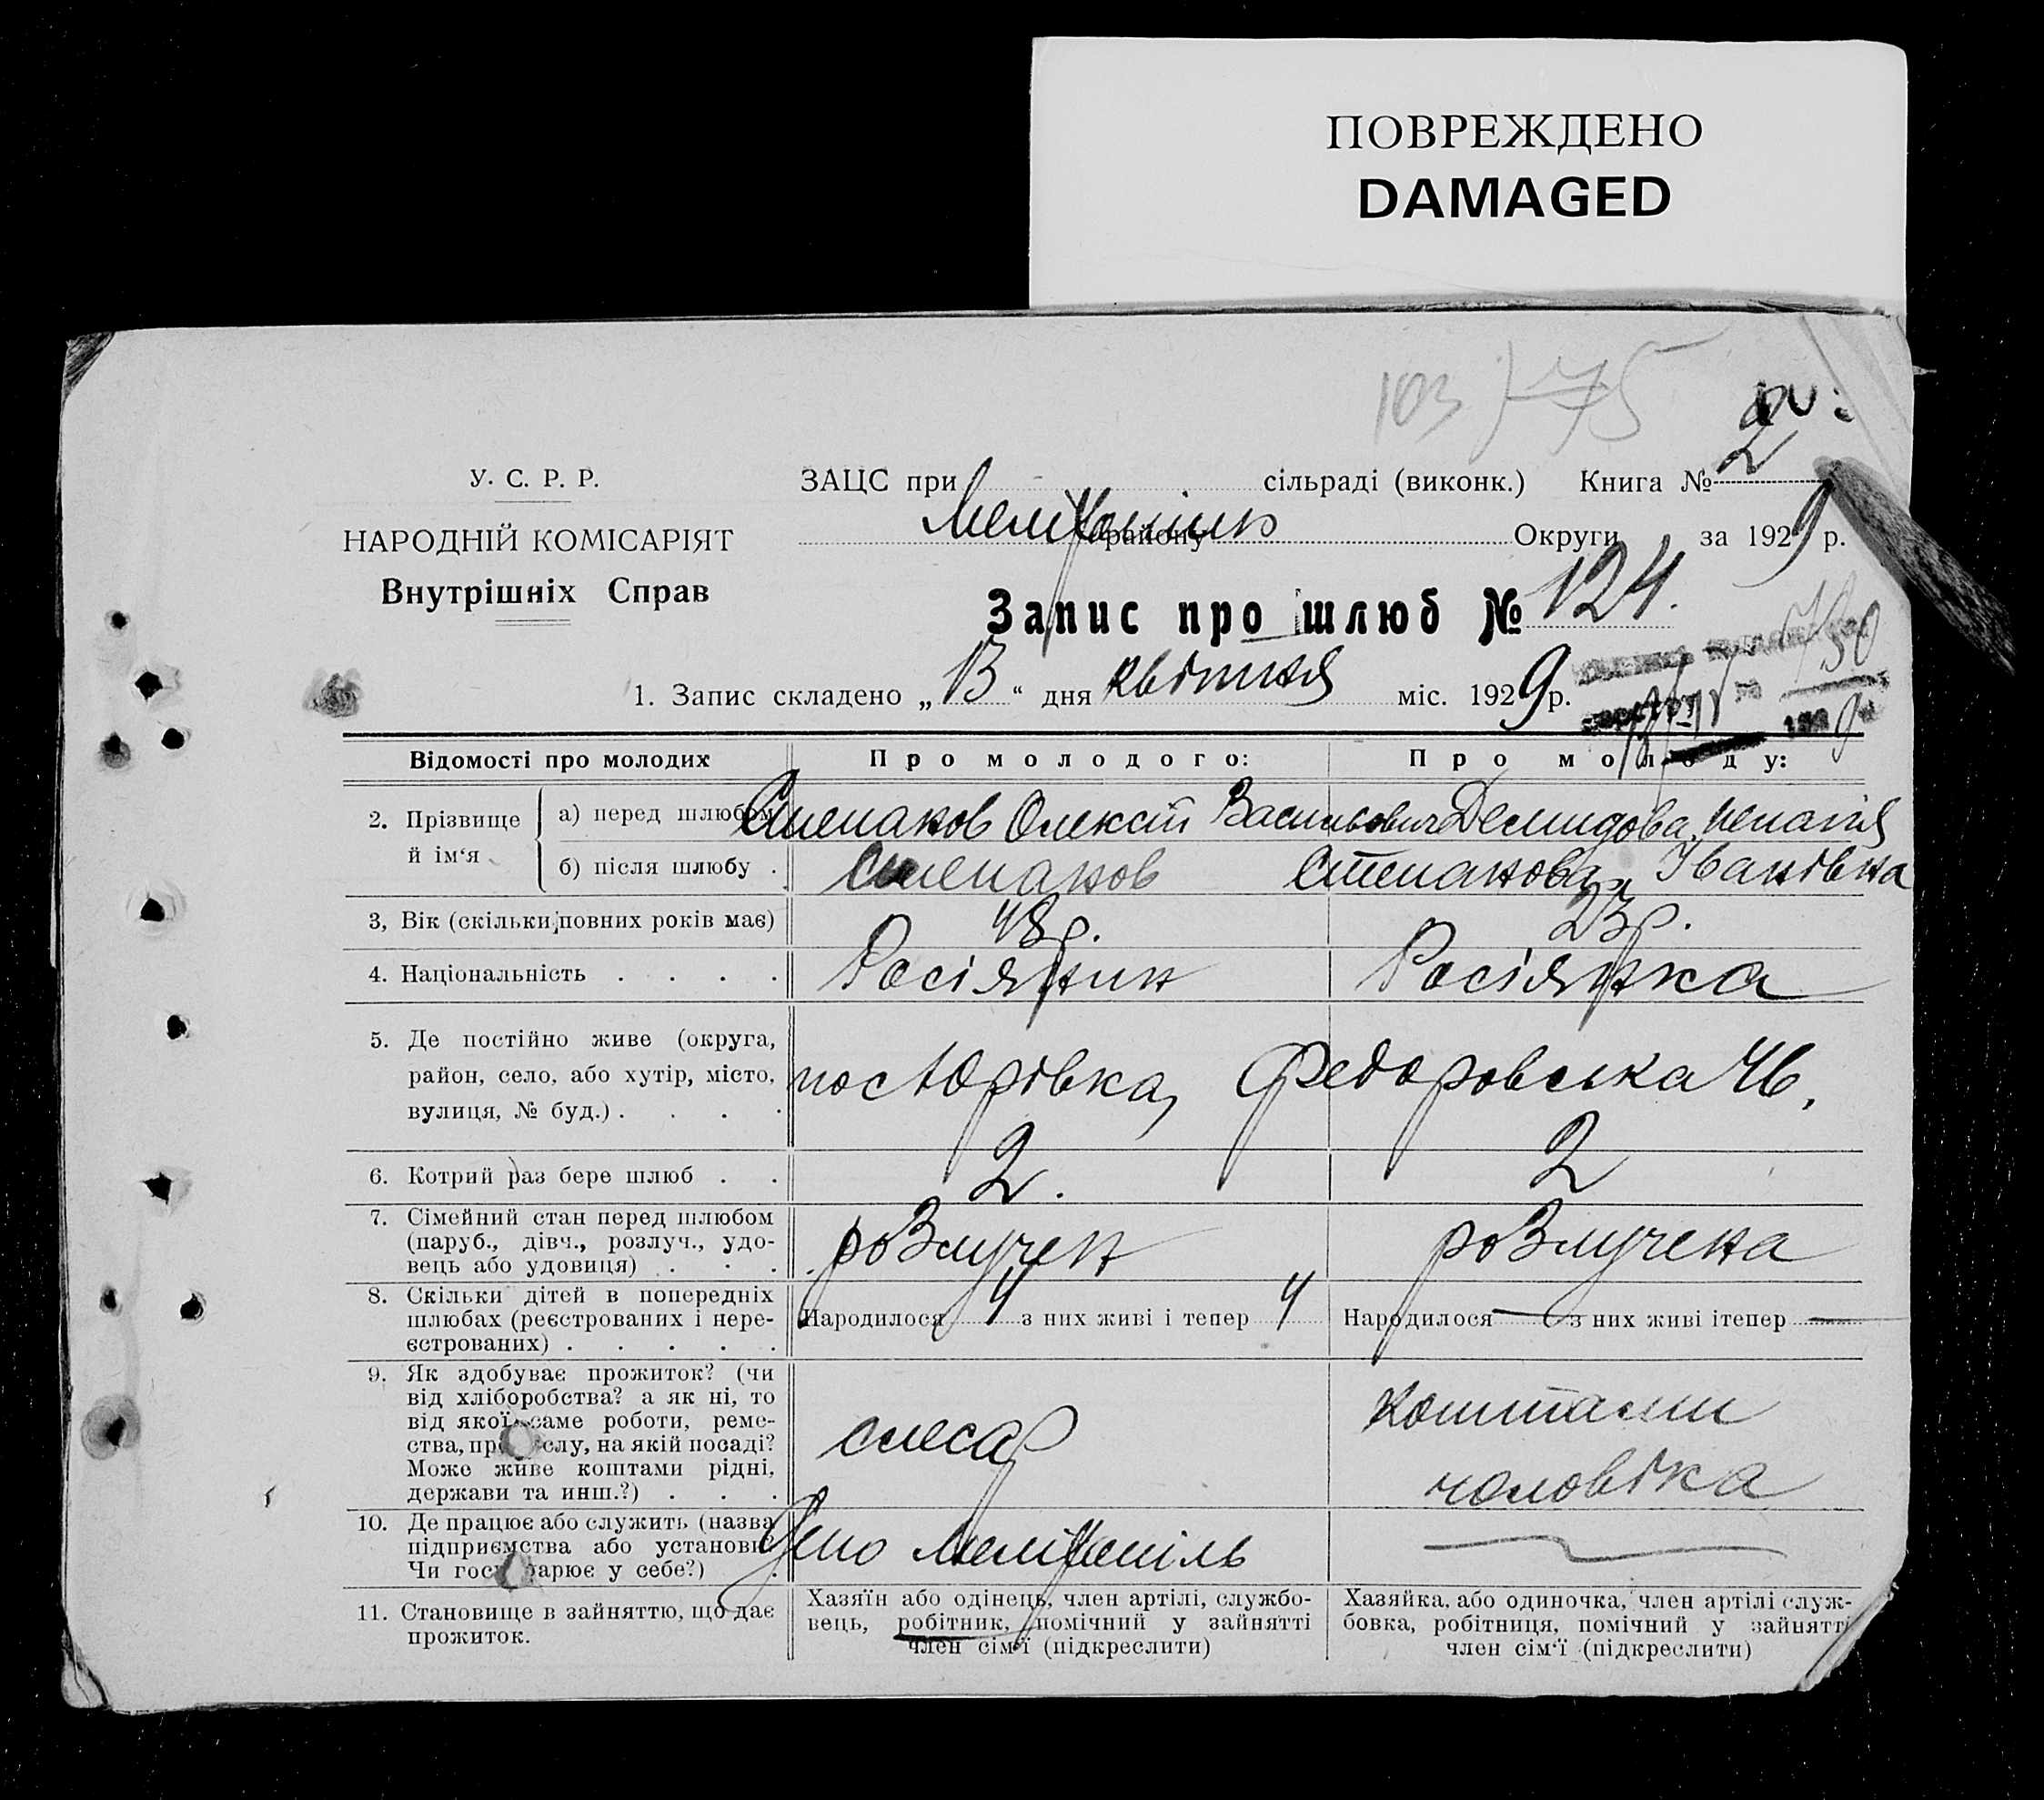 ПОВРЕЖДЕНО
DAMAGED
103 75
2
У. С. Р. Р.
ЗАЦС при сільраді (виконк.) Книга №
НАРОДНІЙ КОМІСАРІЯТ
Внутрішніх Справ
району Округи за 1929 р.
Запис про шлюб № 124.
1. Запис складено „13“ дня квітня міс. 1929 р.
Відомості про молодих
Про молодого:
Про молоду:
2. Прізвище й ім‘я
а) перед шлюбом
Степаков Олексій Васильович
Демидова Пелагія
Іванівна
б) після шлюбу .
Степаков
Степакова
3, Вік (скільки повних років має)
48 р.
23 р.
4. Національність . . . .
Росіянин
Росіянка
5. Де постійно живе (округа,
район, село, або хутір, місто,
вулиця, № буд.) . . . .
Федоровська 46,
6. Котрий раз бере шлюб . .
2.
2
7. Сімейний стан перед шлюбом
(паруб., дівч., розлуч., удо-
вець або удовиця) . . .
розлучен
розлучена
8. Скільки дітей в попередніх
шлюбах (реєстрованих і нере-
єстрованих) . . . . .
Народилося 4 з них живі і тепер 4
Народилося — з них живі ітепер —
9. Як здобуває прожиток? (чи
від хліборобства? а як ні, то
від якої саме роботи, реме-
ства, на якій посаді?
Може живе коштами рідні,
держави та инш.?) . . .
слесар
коштами
чоловіка
10. Де працює або служить (назва
підприємства або установи?
Чи у себе?) .
Депо Мелітопіль
11. Становище в зайняттю, що дає
прожиток.
Хазяїн або одінець, член артілі, службо-
вець, робітник, помічний у зайнятті
член сім‘ї (підкреслити)
Хазяйка, або одиночка, член артілі служ-
бовка, робітниця, помічний у зайнятті
член сім‘ї (підкреслити)